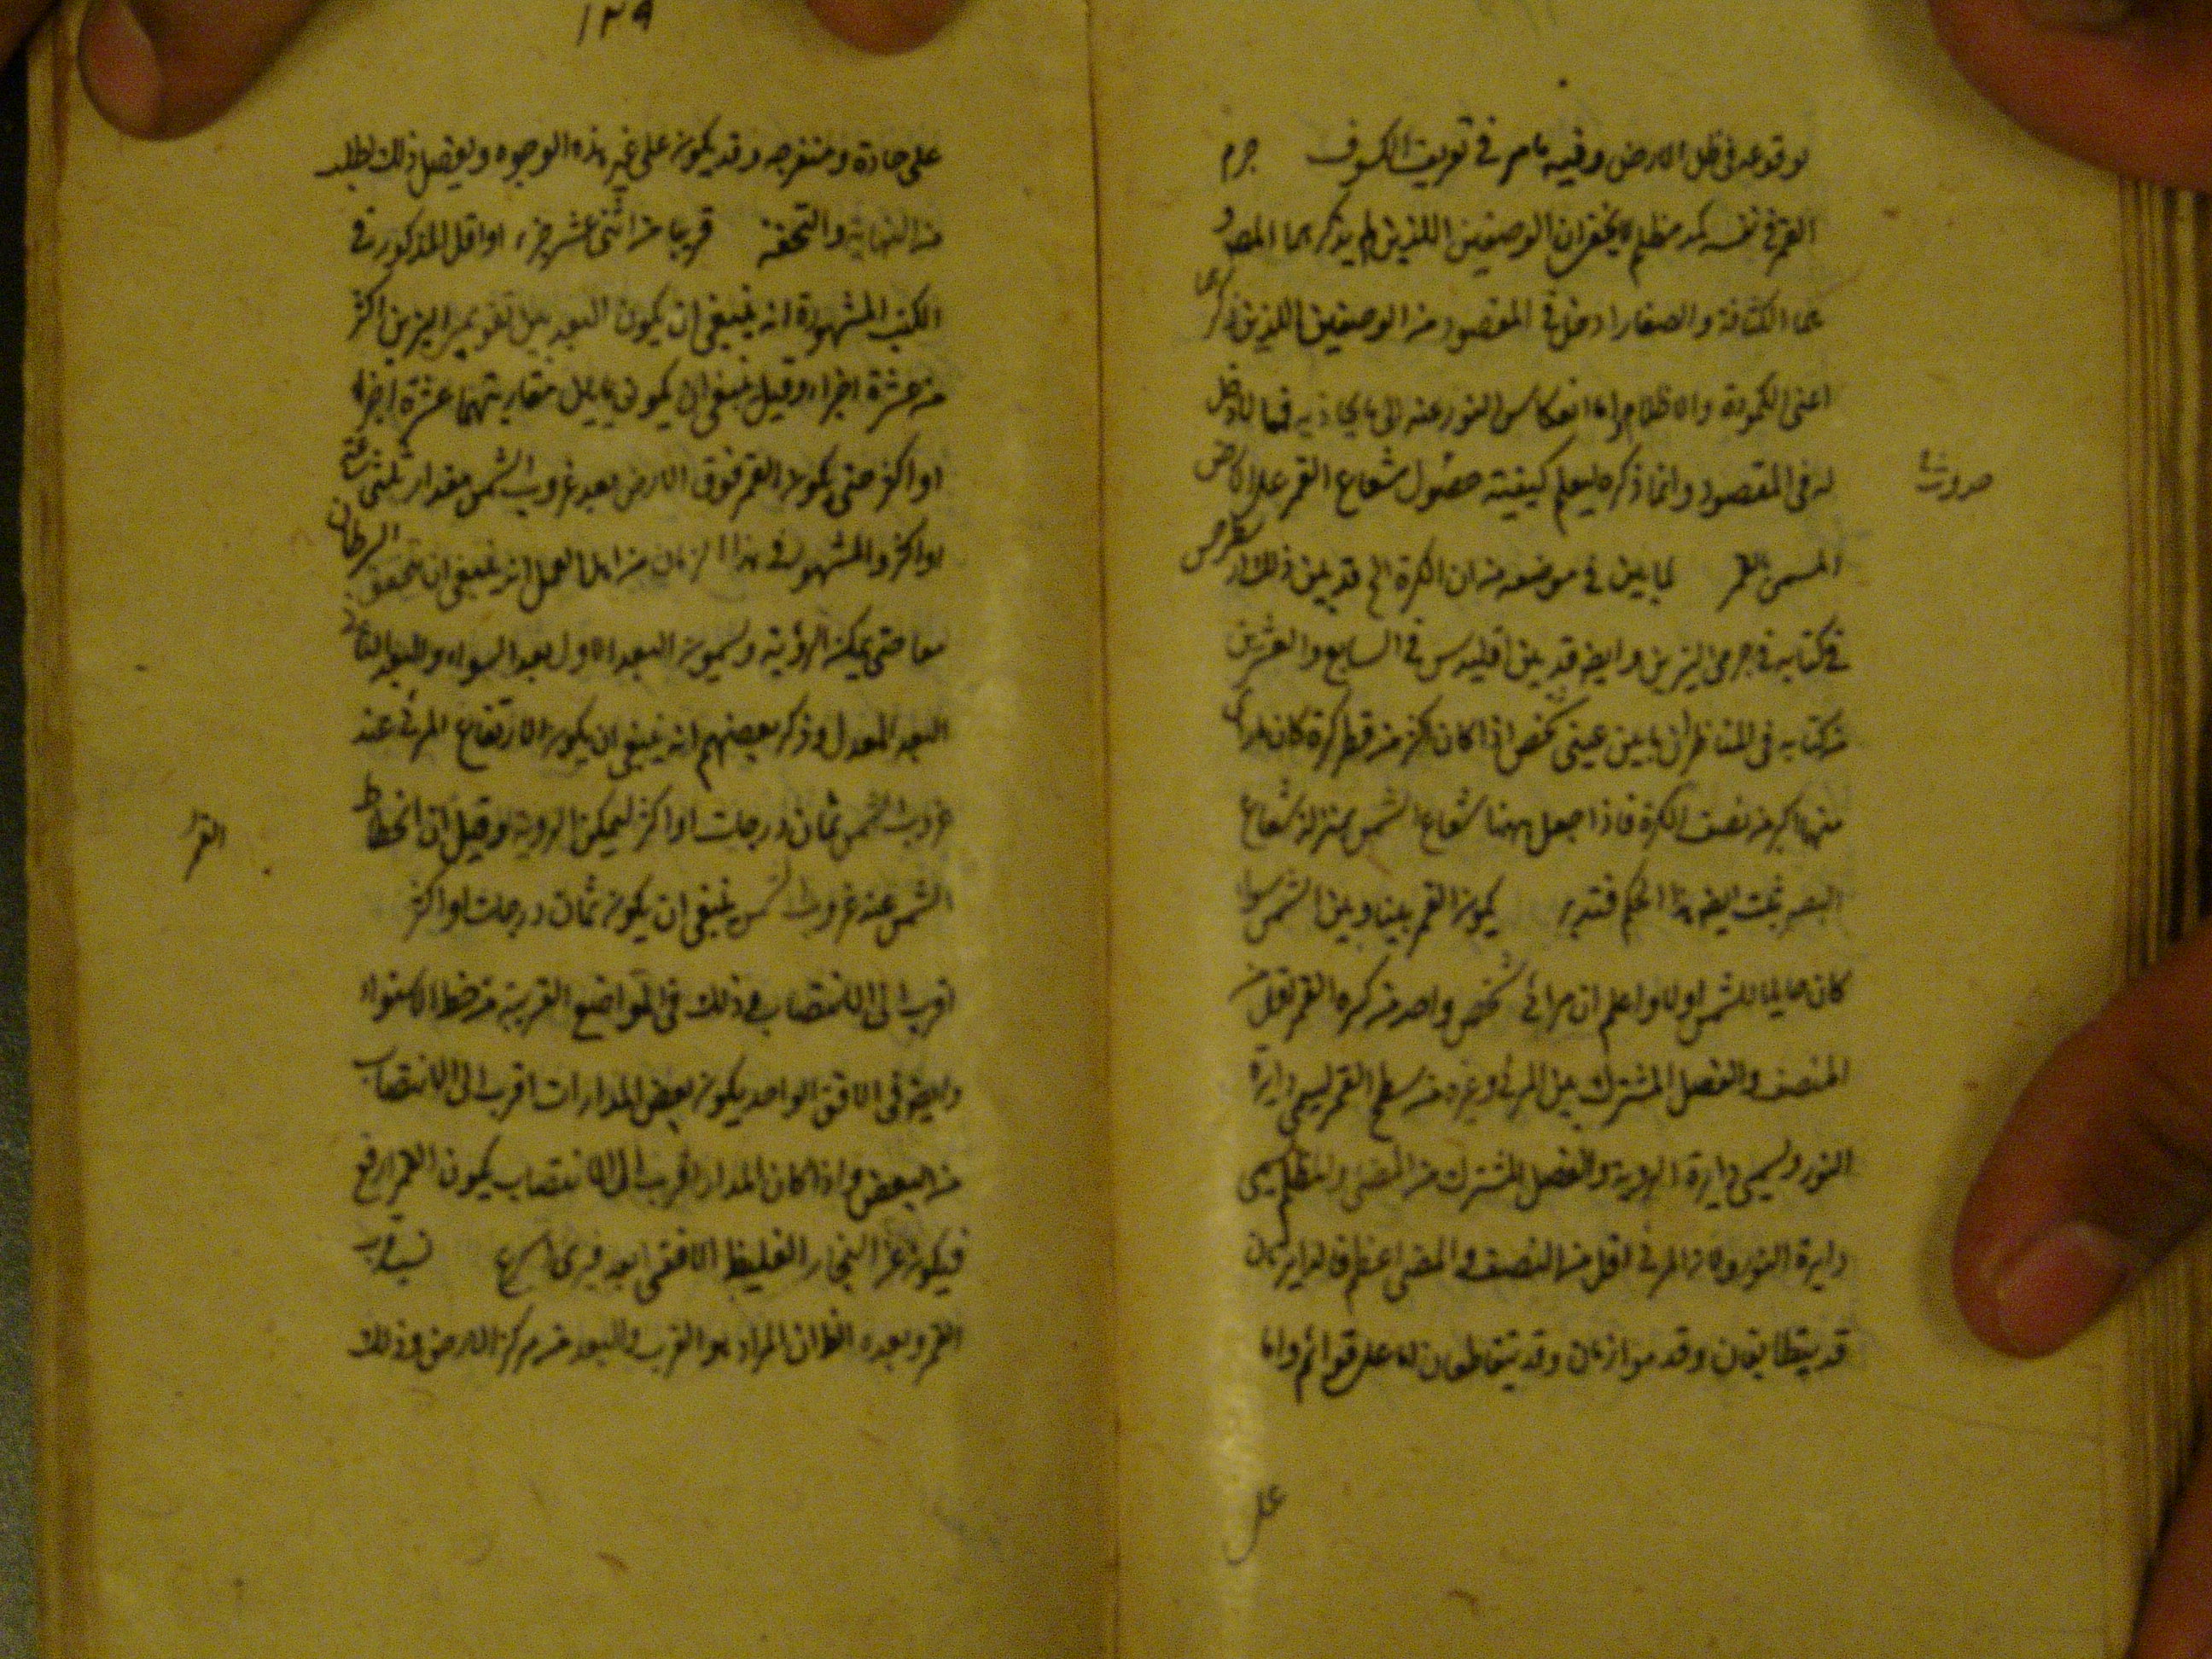 لوقوعه فى ظل الارض وفيه مامر فى تعريف الكسوف جرم
القمر فى نفسه كمد مظلم لا يخفى ان الوصفين اللذين لم يذكرهما المصنف
هما الكثافة والصقال ادخل فى المقصود من الوصفين اللذين ذكرهما
اعنى الكمودة والاظلام واما انعكاس النور عنه الى ما يحاذيه فمما لا دخل
له فى المقصود وانما ذكره ليعلم كيفية حصول شعاع القمر على الارض
المسمى بالقمر لما بين فى موضعه من ان الكرة الخ قد بين ذلك ارسطرخس
فى كتابه فى جرمى النيرين وايضا قد بين اقليدس فى السابع والعشرين
من كتابه فى المناظر ان ما بين عينى شخص اذا كان اكثر من قطر كرة كان المرئى
منها اكبر من نصف الكرة فاذا جعل ههنا شعاع الشمس بمنزلة شعاع
البصر ثبت ايضا هذا الحكم فتدبر يكون القمر بيننا وبين الشمس سواء
كان حايلا للشمس اولا واعلم ان مرائى شخص واحد من كرة القمر اقل من
النصف والفصل المشترك بين المرئى وغيره من سطح القمر يسمى دايرة
النور ويسمى دايرة الروية والفصل المشترك من المضى والمظلم يسمى
دايرة النور ولان المرئى اقل من النصف والمضى اعظم فالدايرتان
قد يتطابقان وقد يوازيان وقد يتقاطعان اما على قوائم واما
على
١٢٩
على حادة ومنفرجة وقد يكون على غير هذه الوجوه وتفصيل ذلك يطلب
من النهاية والتحفة قريبا من اثنى عشر جزء او اقل المذكور فى
الكتب المشهورة انه ينبغى ان يكون البعد بين تقويمى النيرين اكثر
من عشرة اجزاء وقيل ينبغى ان يكون ما بين مغاربتهما عشرة اجزاء
او اكثر حتى يكون القمر فوق الارض بعد غروب الشمس مقدار ثلثى ساعة
او اكثر والمشهور فى هذا الزمان من اهل العمل انه ينبغى ان يتحقق الشرطان
معا حتى يمكن الرؤية ويسمون البعد الاول بعد السواء والبعد الثانى
البعد المعدل وذكر بعضهم انه ينبغى ان يكون الارتفاع المرئى عند
غروب الشمس ثمان درجات او اكثر ليمكن الروية وقيل ان انحطاط
الشمس عند غروب يبغى ان يكون ثمان درجات او اكثر
اقرب الى الانتصاب وذلك فى المواضع القريبة من خط الاستواء
وايضا فى الافق الواحد يكون بعض المدارات اقرب الى الانتصاب
من البعض واذا كان المدار اقرب الى الانتصاب يكون القمر ارفع
فيكون عن البخار الغليظ الافقى ابعد فيرى اسرع قرب
القمر وبعده الظ ان المراد هو القرب والبعد من مركز الارض وذلك
القمر